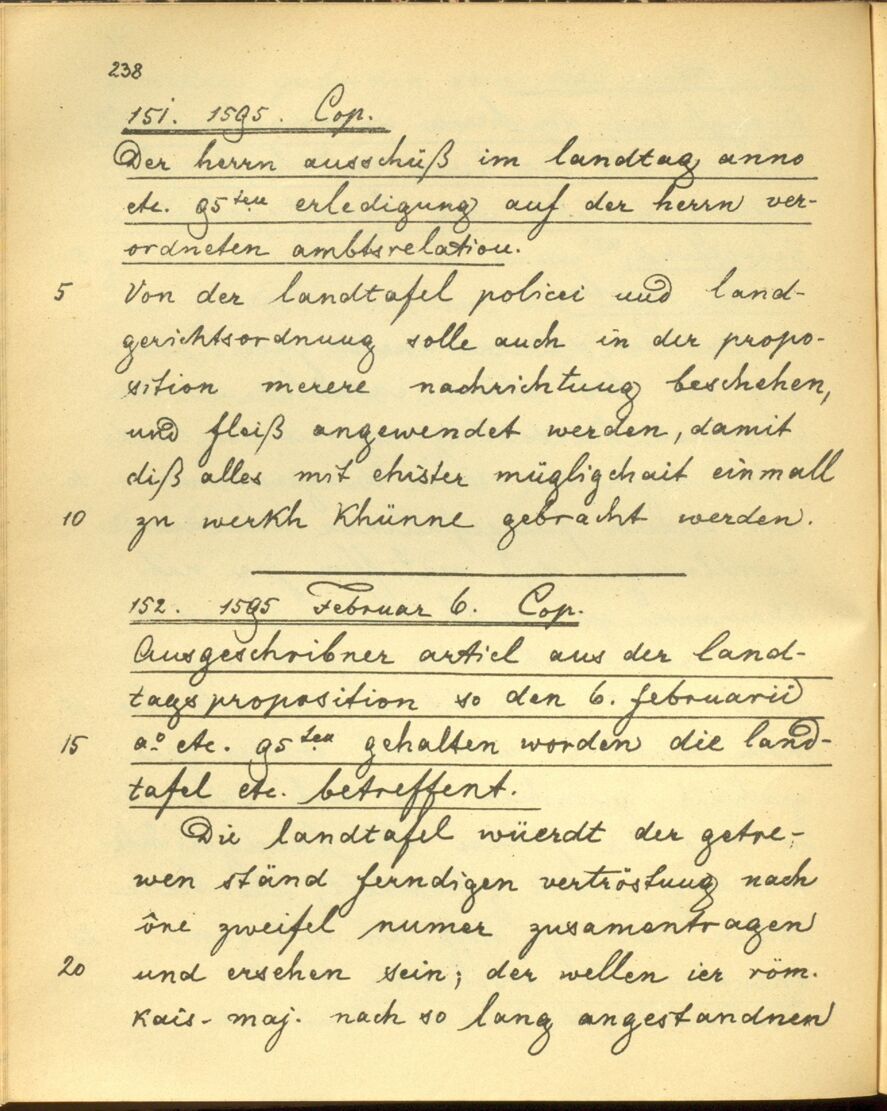 238
151. 1595. Cop.
Der herrn ausschüß im landtag anno
etc. 95 ten erledigung auf der herrn ver-
ordneten ambtsrelation.
5 Von der landtafel policei und land-
gerichtsordnung solle auch in der propo-
sition merere nachrichtung beschehen,
und fleiß angewendet werden, damit
diß alles mit ehister mügligchait einmall
10 zu werkh khünne gebracht werden.
152. 1595 Februar 6. Cop.
Ausgeschribner articl aus der land-
tagsproposition so den 6. februarii
15 a.º etc. 95 ten gehalten worden die land-
tafel etc. betreffent.
Die landtafel wüerdt der getre-
wen ständ ferndigen vertröstung nach
öne zweifel numer zusamentragen
20 und ersehen sein; der wellen ier röm.
kais. maj. nach so lang angestandnen